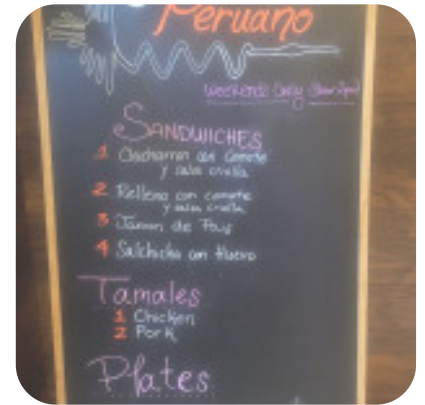 Peruano
Weekends Only
SANDWICHES
1 Chicharron con Camote
y salsa criolla
2 Relleno con camote
y salsa criolla
3 Jamon del Pais
4 Salchicha con Huevo
Tamales
1 Chicken
2 Pork
Plates